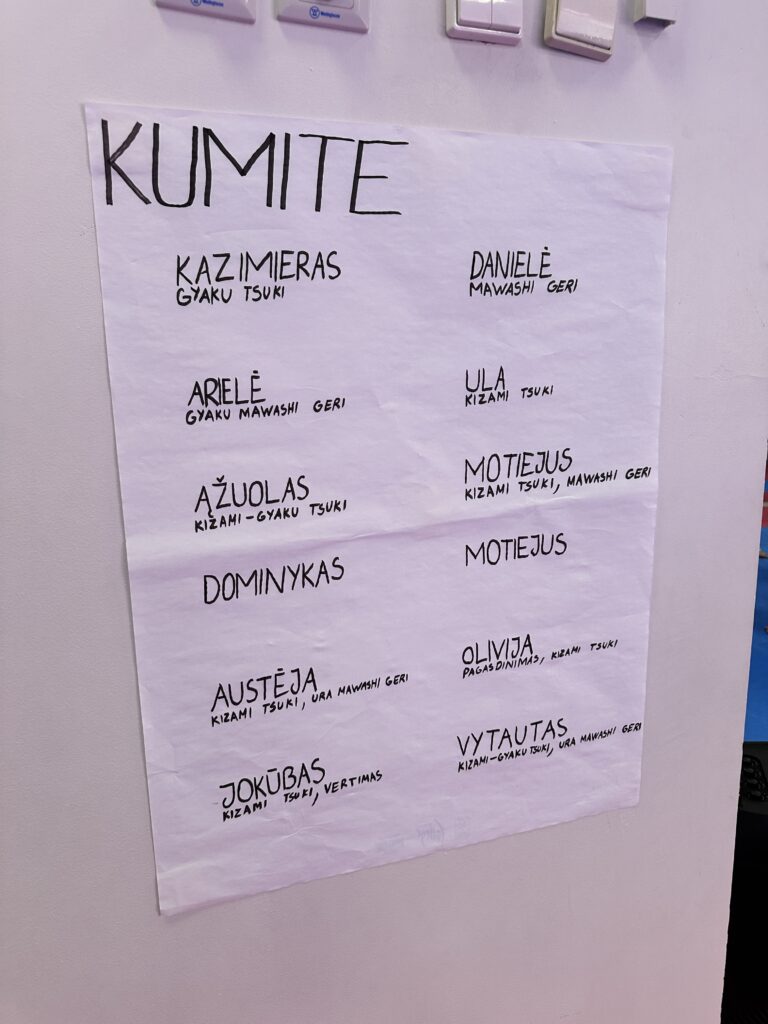 KUMITE
KAZIMIERAS
GYAKU TSUKI
DANIELĖ
MAWASHI GERI
ARIELĖ
GYAKU MAWASHI GERI
ULA
KIZAMI TSUKI
ĄŽUOLAS
KIZAMI-GYAKU TSUKI
MOTIEJUS
KIZAMI TSUKI, MAWASHI GERI
DOMINYKAS
MOTIEJUS
AUSTĖJA
KIZAMI TSUKI, URA MAWASHI GERI
OLIVIJA
PAGASDINIMAS, KIZAMI TSUKI
JOKŪBAS
KIZAMI TSUKI, VERTIMAS
VYTAUTAS
KIZAMI-GYAKU TSUKI, URA MAWASHI GERI